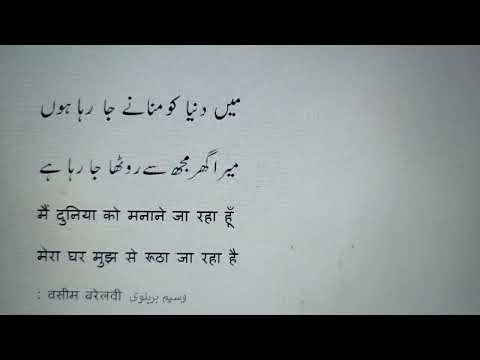 میں دنیا کو منانے جا رہا ہوں
میرا گھر مجھ سے روٹھا جا رہا ہے
मैं दुनिया को मनाने जा रहा हूँ
मेरा घर मुझ से रूठा जा रहा है
: वसीम बरेलवी وسیم بریلوی